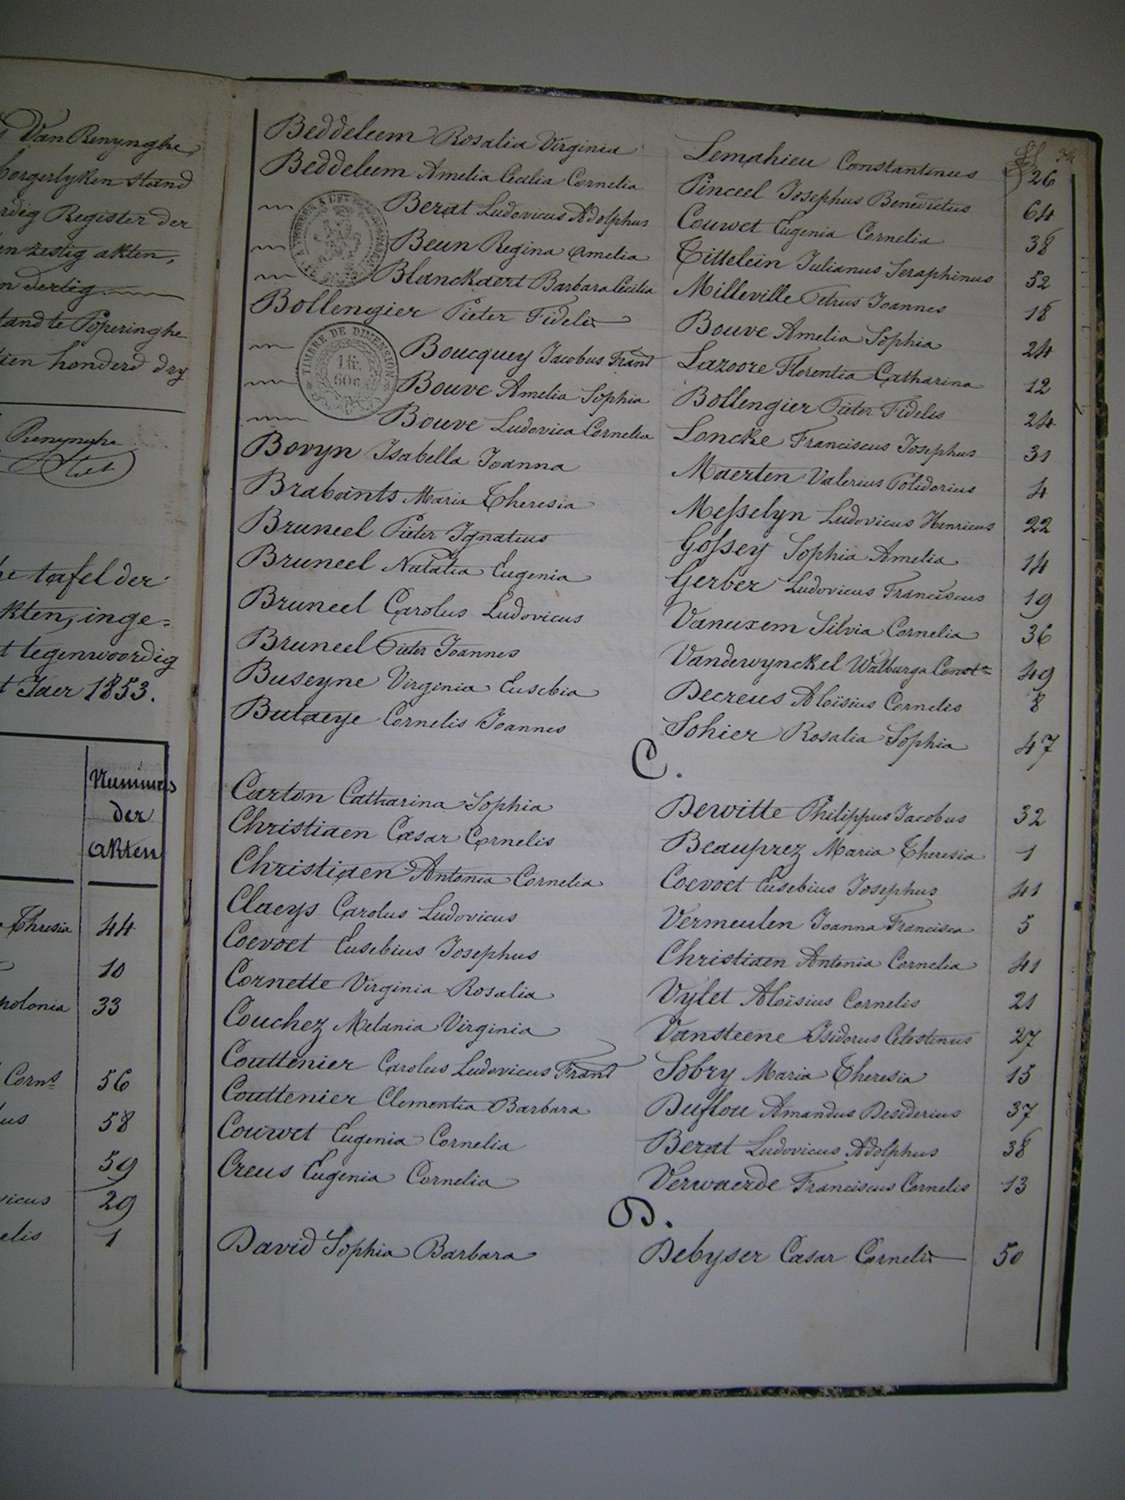 Van Renynghe,
borgerlyken stand
Register der
zestig akten,
dertig
te Poperinghe
tien honderd dry
Renynghe
tafel der
akten, inge=
tegenwoordig
Jaer 1853.
Nummers
der
akten
Thresia 44
10
polonia 33
Corns 56
us 58
59
vicus 29
elis 1
Beddeleem Rosalia Virginia Lemahieu Constantinus 26
Beddeleem Amelia Cecilia Cornelia Pinceel Josephus Benedictus 64
Berat Ludovicus Adolphus Couwet Eugenia Cornelia 38
Beun Regina Amelia Tittelein Julianus Seraphinus 52
Blanckaert Barbara Cecilia Milleville Petrus Joannes 18
Bollengier Pieter Fidelis Bouve Amelia Sophia 24
Boucquey Jacobus Frans Lazoore Florentia Catharina 12
TIMBRE DE DIMENSION
Bouve Amelia Sophia Bollengier Pieter Fidelis 24
Bouve Ludovica Cornelia Loncke Franciscus Josephus 31
Bovyn Isabella Joanna Maerten Valerius Polidorius 4
Brabants Maria Theresia Messelyn Ludovicus Henricus 22
Bruneel Pieter Ignatius Gossey Sophia Amelia 14
Bruneel Natalia Eugenia Gerber Ludovicus Franciscus 19
Bruneel Carolus Ludovicus Vanuxem Silvia Cornelia 36
Bruneel Pieter Joannes Vandewynckel Walburga Const. 49
Buseyne Virginia Eusebia Decreus Aloïsius Cornelis 8
Butaeye Cornelis Joannes Sohier Rosalia Sophia 47
C.
Carton Catharina Sophia Dewitte Philippus Jacobus 32
Christiaen Cæsar Cornelis Beauprez Maria Theresia 1
Christiaen Antonia Cornelia Coevoet Eusebius Josephus 41
Claeys Carolus Ludovicus Vermeulen Joanna Francisca 5
Coevoet Eusebius Josephus Christiaen Antonia Cornelia 41
Cornette Virginia Rosalia Vylet Aloïsius Cornelis 21
Couchez Melania Virginia Vansteene Isidorus Celestinus 27
Couttenier Carolus Ludovicus Frans Sobry Maria Theresia 15
Couttenier Clementia Barbara Duflou Amandus Desiderius 37
Couwet Eugenia Cornelia Berat Ludovicus Adolphus 38
Creus Eugenia Cornelia Verwaerde Franciscus Cornelis 13
D.
David Sophia Barbara Debyser Cæsar Cornelis 50